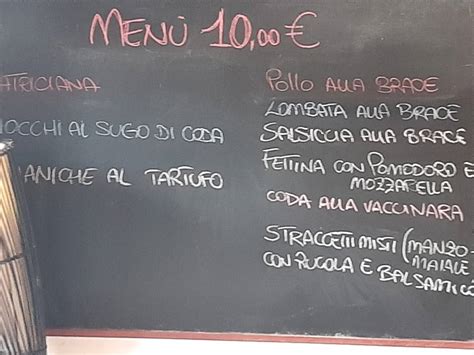 MENÙ 10,00 €
ATRICIANA
OCCHI AL SUGO DI CODA
ANICHE AL TARTUFO
POLLO ALLA BRACE
LOMBATA ALLA BRACE
SALSICCIA ALLA BRACE
FETTINA CON POMODORO E
MOZZARELLA
CODA ALLA VACCINARA
STRACCETTI MISTI (MANZO-
MAIALE
CON RUCOLA E BALSAMICO